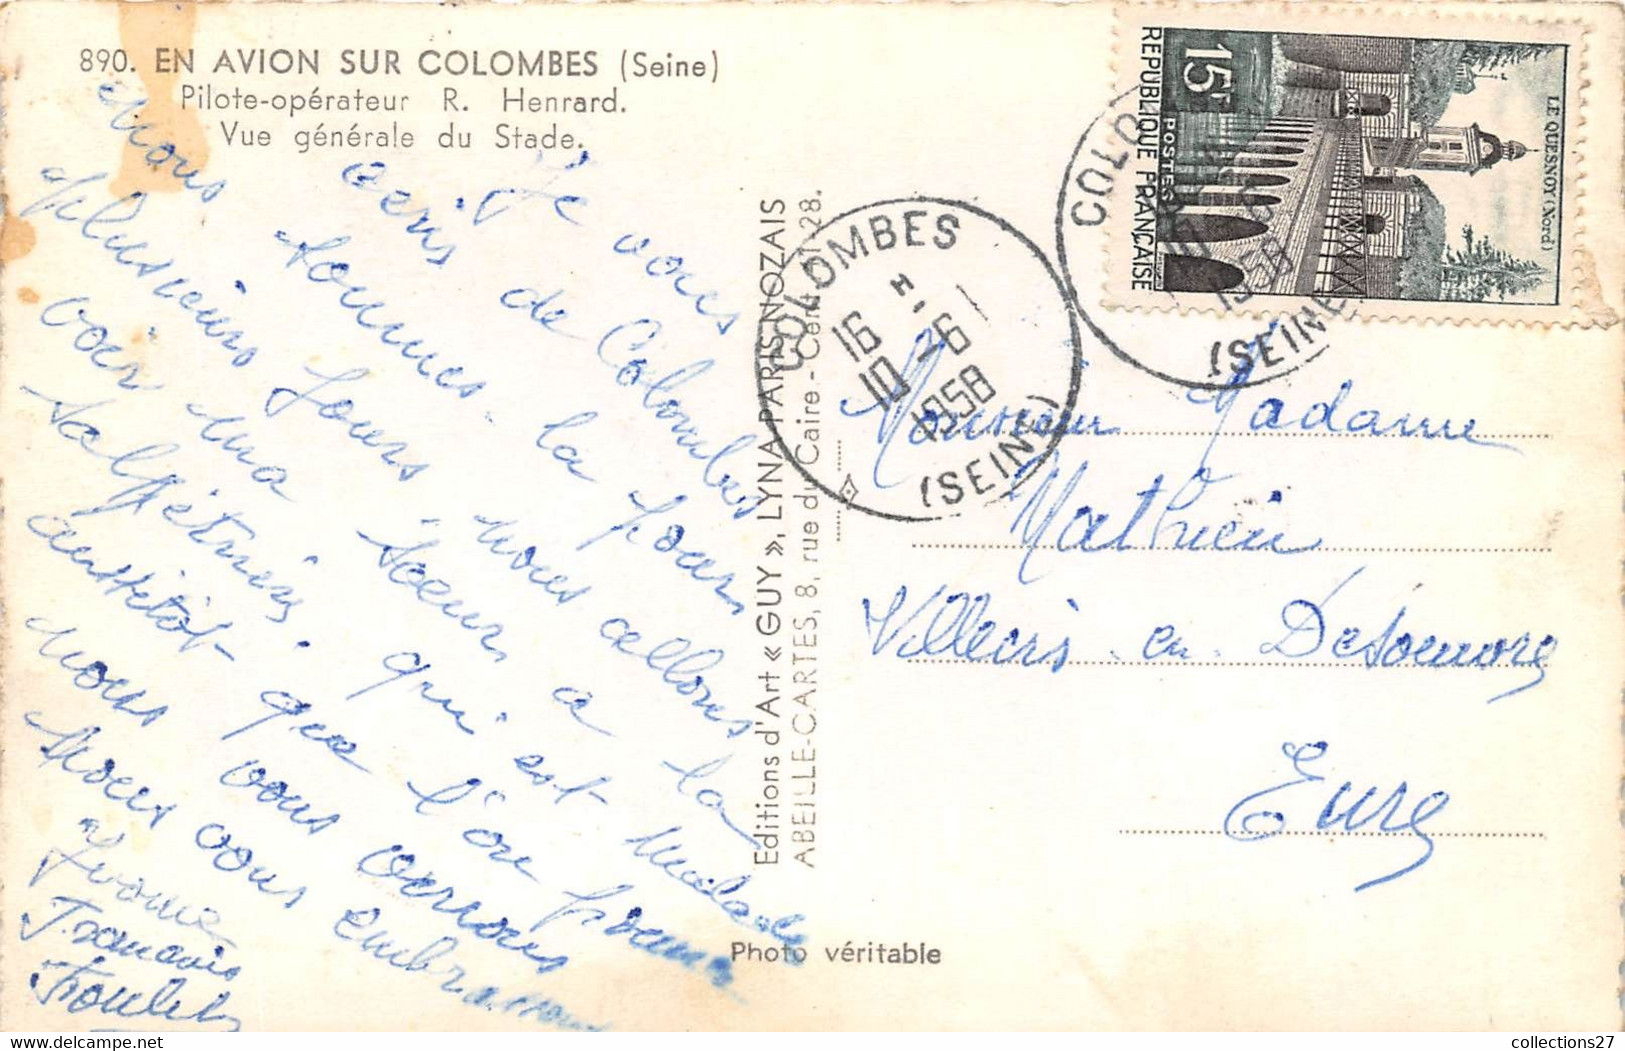 890. EN AVION SUR COLOMBES (Seine)
Pilote-opérateur R. Henrard.
Vue générale du Stade.
Je vous
ecris de Colombes
nous sommes la pour
plusieurs jours nous allons
voir ma soeur a la
Salpétrière qui est malade
aussitôt que l'on pourra
nous vous verrons
nous vous embrassons
Yvonne
Francois
Editions d'Art « GUY », LYNA-PARIS, NOZAIS
ABEILLE-CARTES, 8, rue du Caire - Cen. 41-28.
Photo véritable
15F
POSTES
REPUBLIQUE FRANÇAISE
LE QUESNOY (Nord)
COLOMBES
16 H.
10 - 6
1958
(SEINE)
COLO
1958
(SEINE
Monsieur Madame
Mathieu
Villiers en Desoeuvre
Eure
collections27